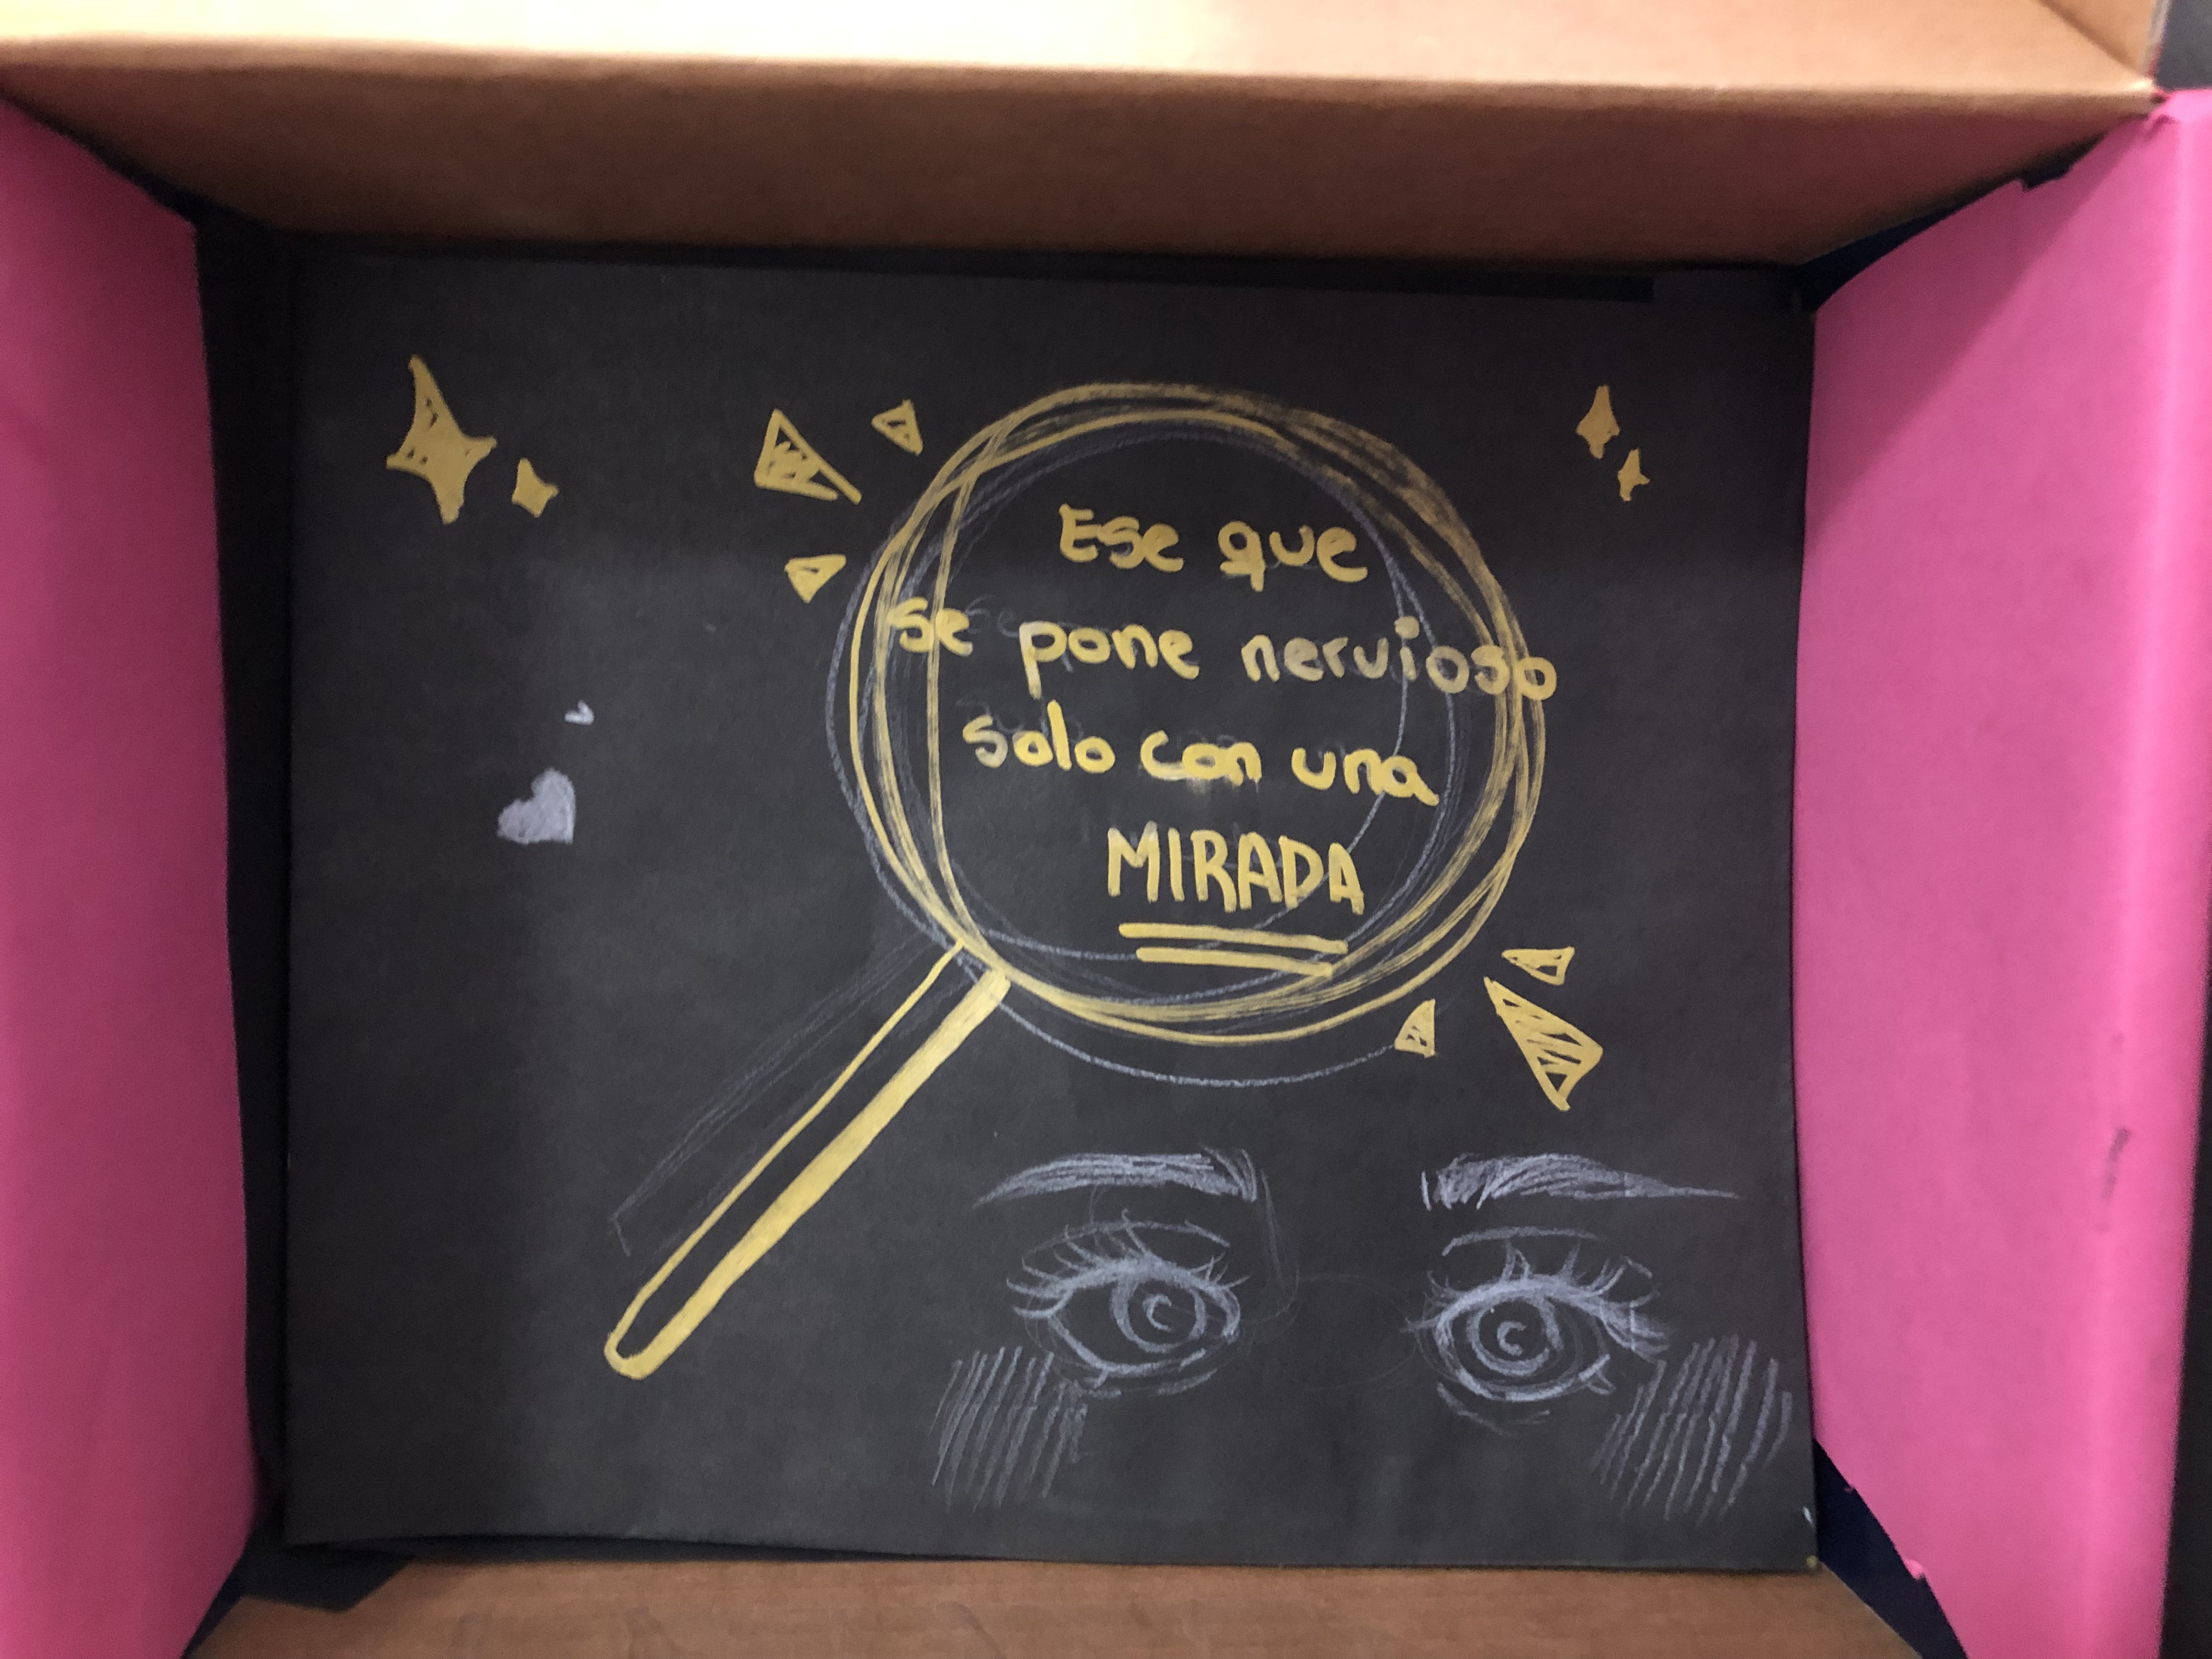 Ese que
se pone nervioso
solo con una
MIRADA